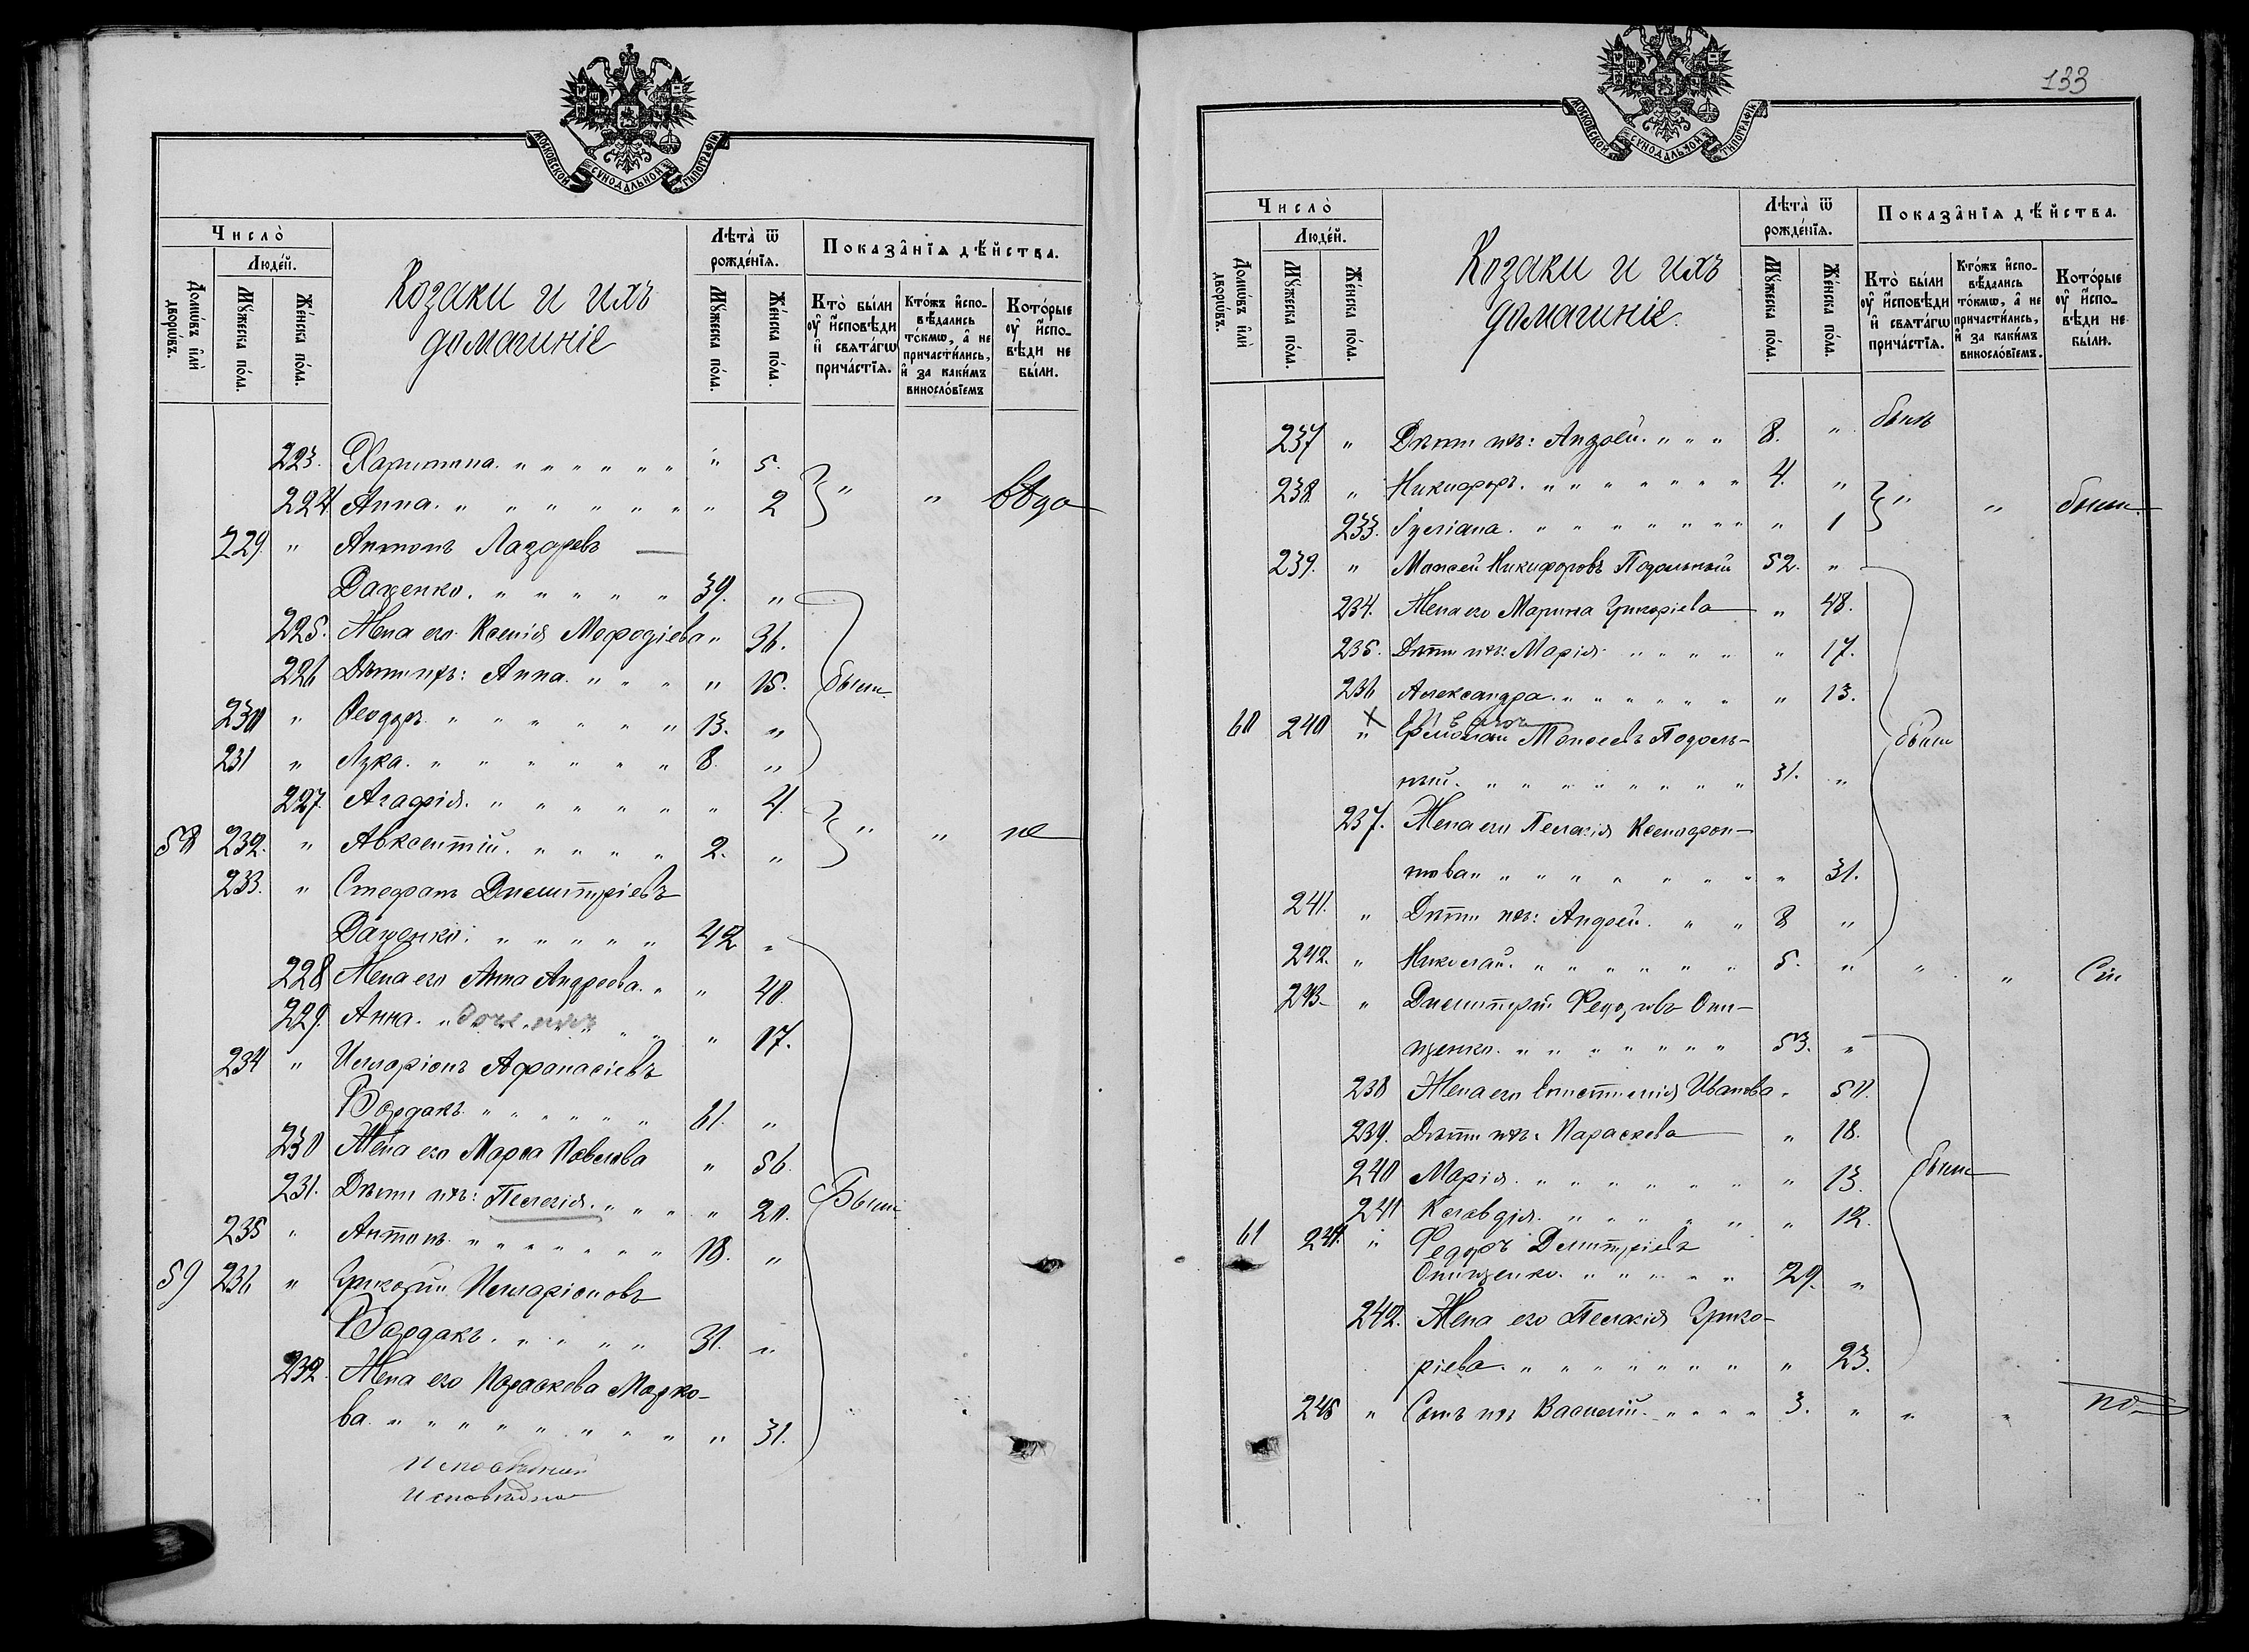 МОСКОВСКОЙ СѴНОДАЛЬНОЙ ТИПОГРАФІИ
Число̀
Люде́й.
Домѡ́въ и҆лѝ дворѡ́въ.
Мꙋ́жеска по́ла.
Же́нска по́ла.
Козаки и ихъ
домашніе
Лѣта̀ ѿ рожде́нїѧ.
Мꙋ́жеска по́ла.
Же́нска по́ла.
Показа̂нїѧ дѣ́йства.
Кто̀ бы́ли оу҆ и҆́сповѣди и҆ свѧта́гѡ прича́стїѧ.
Кто́жъ и҆спо­вѣ́дались то́кмѡ, а҆ не причасти́лись, и҆ за каки́мъ винослѡ́вїемъ
Кото́рые оу҆ и҆́спо­вѣди не бы́ли.
223. Харитина. " " " " " " " 5.
224 Анна. " " " " " " " 2 " "
229. " Антонъ Лазаревъ
Даценко. " " " " " 39. "
225. Жена его Ксенія Мефодіева " 36.
226 Дѣти ихъ: Анна. " " " " 15. были
230 " Ѳеодоръ. " " " " " " 13. "
231 " Лука. " " " " " " 8. "
227. Агафія. " " " " " " 4.
58 232. " Авксентій. " " " " " 2. " " " не
233. " Стефанъ Димитріевъ
Даценко. " " " " " 42 "
228 Жена его Анна Андреева. " " 40.
229. Анна. " дочь ихъ " " 17.
234 " Илларіонъ Афанасіевъ
Бордакъ. " " " " " " 61. "
230 Жена его Марѳа Павлова " 56.
231. Дѣти ихъ: Пелагія. " " " " 20. Были
235 " Антонъ. " " " " " " " 18. "
59 236 " Григорій Илларіоновъ
Бордакъ. " " " " 31. "
232. Жена его Параскева Марко-
ва. " " " " " " " " " 31.
Исповѣдный
Исповѣдно
133
МОСКОВСКОЙ СѴНОДАЛЬНОЙ ТИПОГРАФІИ
Число̀
Люде́й.
Домѡ́въ и҆лѝ дворѡ́въ.
Мꙋ́жеска по́ла.
Же́нска по́ла.
Козаки и ихъ
домашніе.
Лѣта̀ ѿ рожде́нїѧ.
Мꙋ́жеска по́ла.
Же́нска по́ла.
Показа̂нїѧ дѣ́йства.
Кто̀ бы́ли оу҆ и҆́сповѣди и҆ свѧта́гѡ прича́стїѧ.
Кто́жъ и҆спо­вѣ́дались то́кмѡ, а҆ не причасти́лись, и҆ за каки́мъ винослѡ́вїемъ.
Кото́рые оу҆ и҆́спо­вѣди не бы́ли.
237 " Дѣти ихъ: Андрей. " " " 8. " былъ
238 " Никифоръ. " " " " " " " 4. " " " были
233. Іуліана. " " " " " " " " " 1
239. " Моисей Никифоровъ Подольный 52. "
234. Жена его Марина Григоріева " 48.
235. Дѣти ихъ: Марія " " " " " 17.
236 Александра. " " " " " " " 13.
60 240 " Моисеевъ Подоль-
ный. " " " " " " " " " 31. " были
237. Жена его Пелагія Ксенофон-
това " " " " " " " " " 31.
241. " Дѣти ихъ: Андрей. " " 8 "
242. " Николай. " " " " " " 5. " " "
243. " Димитрій Федоровъ Они-
щенко. " " " " " " " " 53. "
238 Жена его Евстимія Иванова " 50.
239. Дѣти ихъ: Параскева " 18.
240 Марія. " " " " " " " " 13. были
241 Клавдія. " " " " " " " 12.
61 244. " Федоръ Димитріевъ
Онищенко. " " " " " 29. "
242. Жена его Пелагія Григо-
ріева. " " " " " " " " " 23.
245 " Сынъ ихъ Василій. " " " " 3. " " "